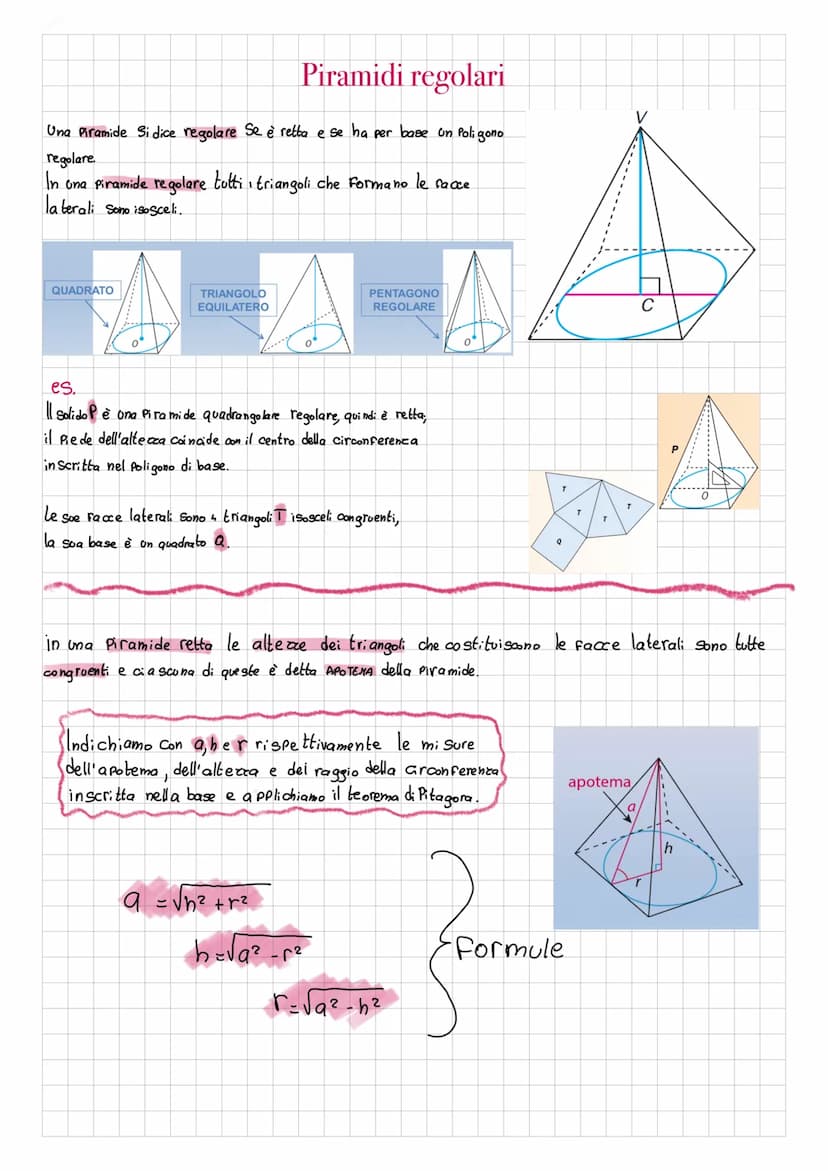 Piramidi regolari
Una Piramide Si dice regolare Se è retta e se ha per base un Poligono
regolare.
In una piramide regolare tutti i triangoli che Formano le facce
laterali Sono isosceli.
V
C
QUADRATO
O
TRIANGOLO
EQUILATERO
O
PENTAGONO
REGOLARE
O
es.
Il solido P è una Piramide quadrangolare regolare, quindi è retta;
il Piede dell'altezza coincide con il centro della circonferenza
inscritta nel Poligono di base.
P
O
Le sue facce laterali sono 4 triangoli T isosceli congruenti,
la sua base è un quadrato Q.
T
T
T
T
Q
in una Piramide retta le altezze dei triangoli che costituiscono le facce laterali sono tutte
congruenti e ciascuna di queste è detta APOTEMA della Piramide.
Indichiamo con a, h e r rispettivamente le misure
dell'apotema, dell'altezza e del raggio della circonferenza
inscritta nella base e applichiamo il teorema di Pitagora.
apotema
a
h
r
a = √h² + r²
h = √a² - r²
r = √a² - h²
Formule